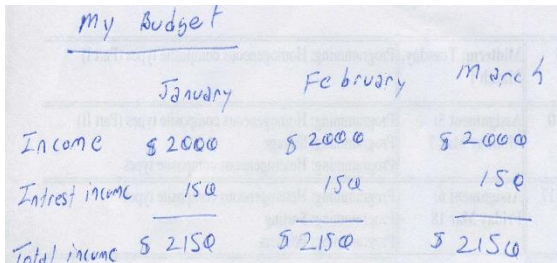 My Budget
January February March
Income $2000 $2000 $2000
Intrest income 150 150 150
Total income $2150 $2150 $2150